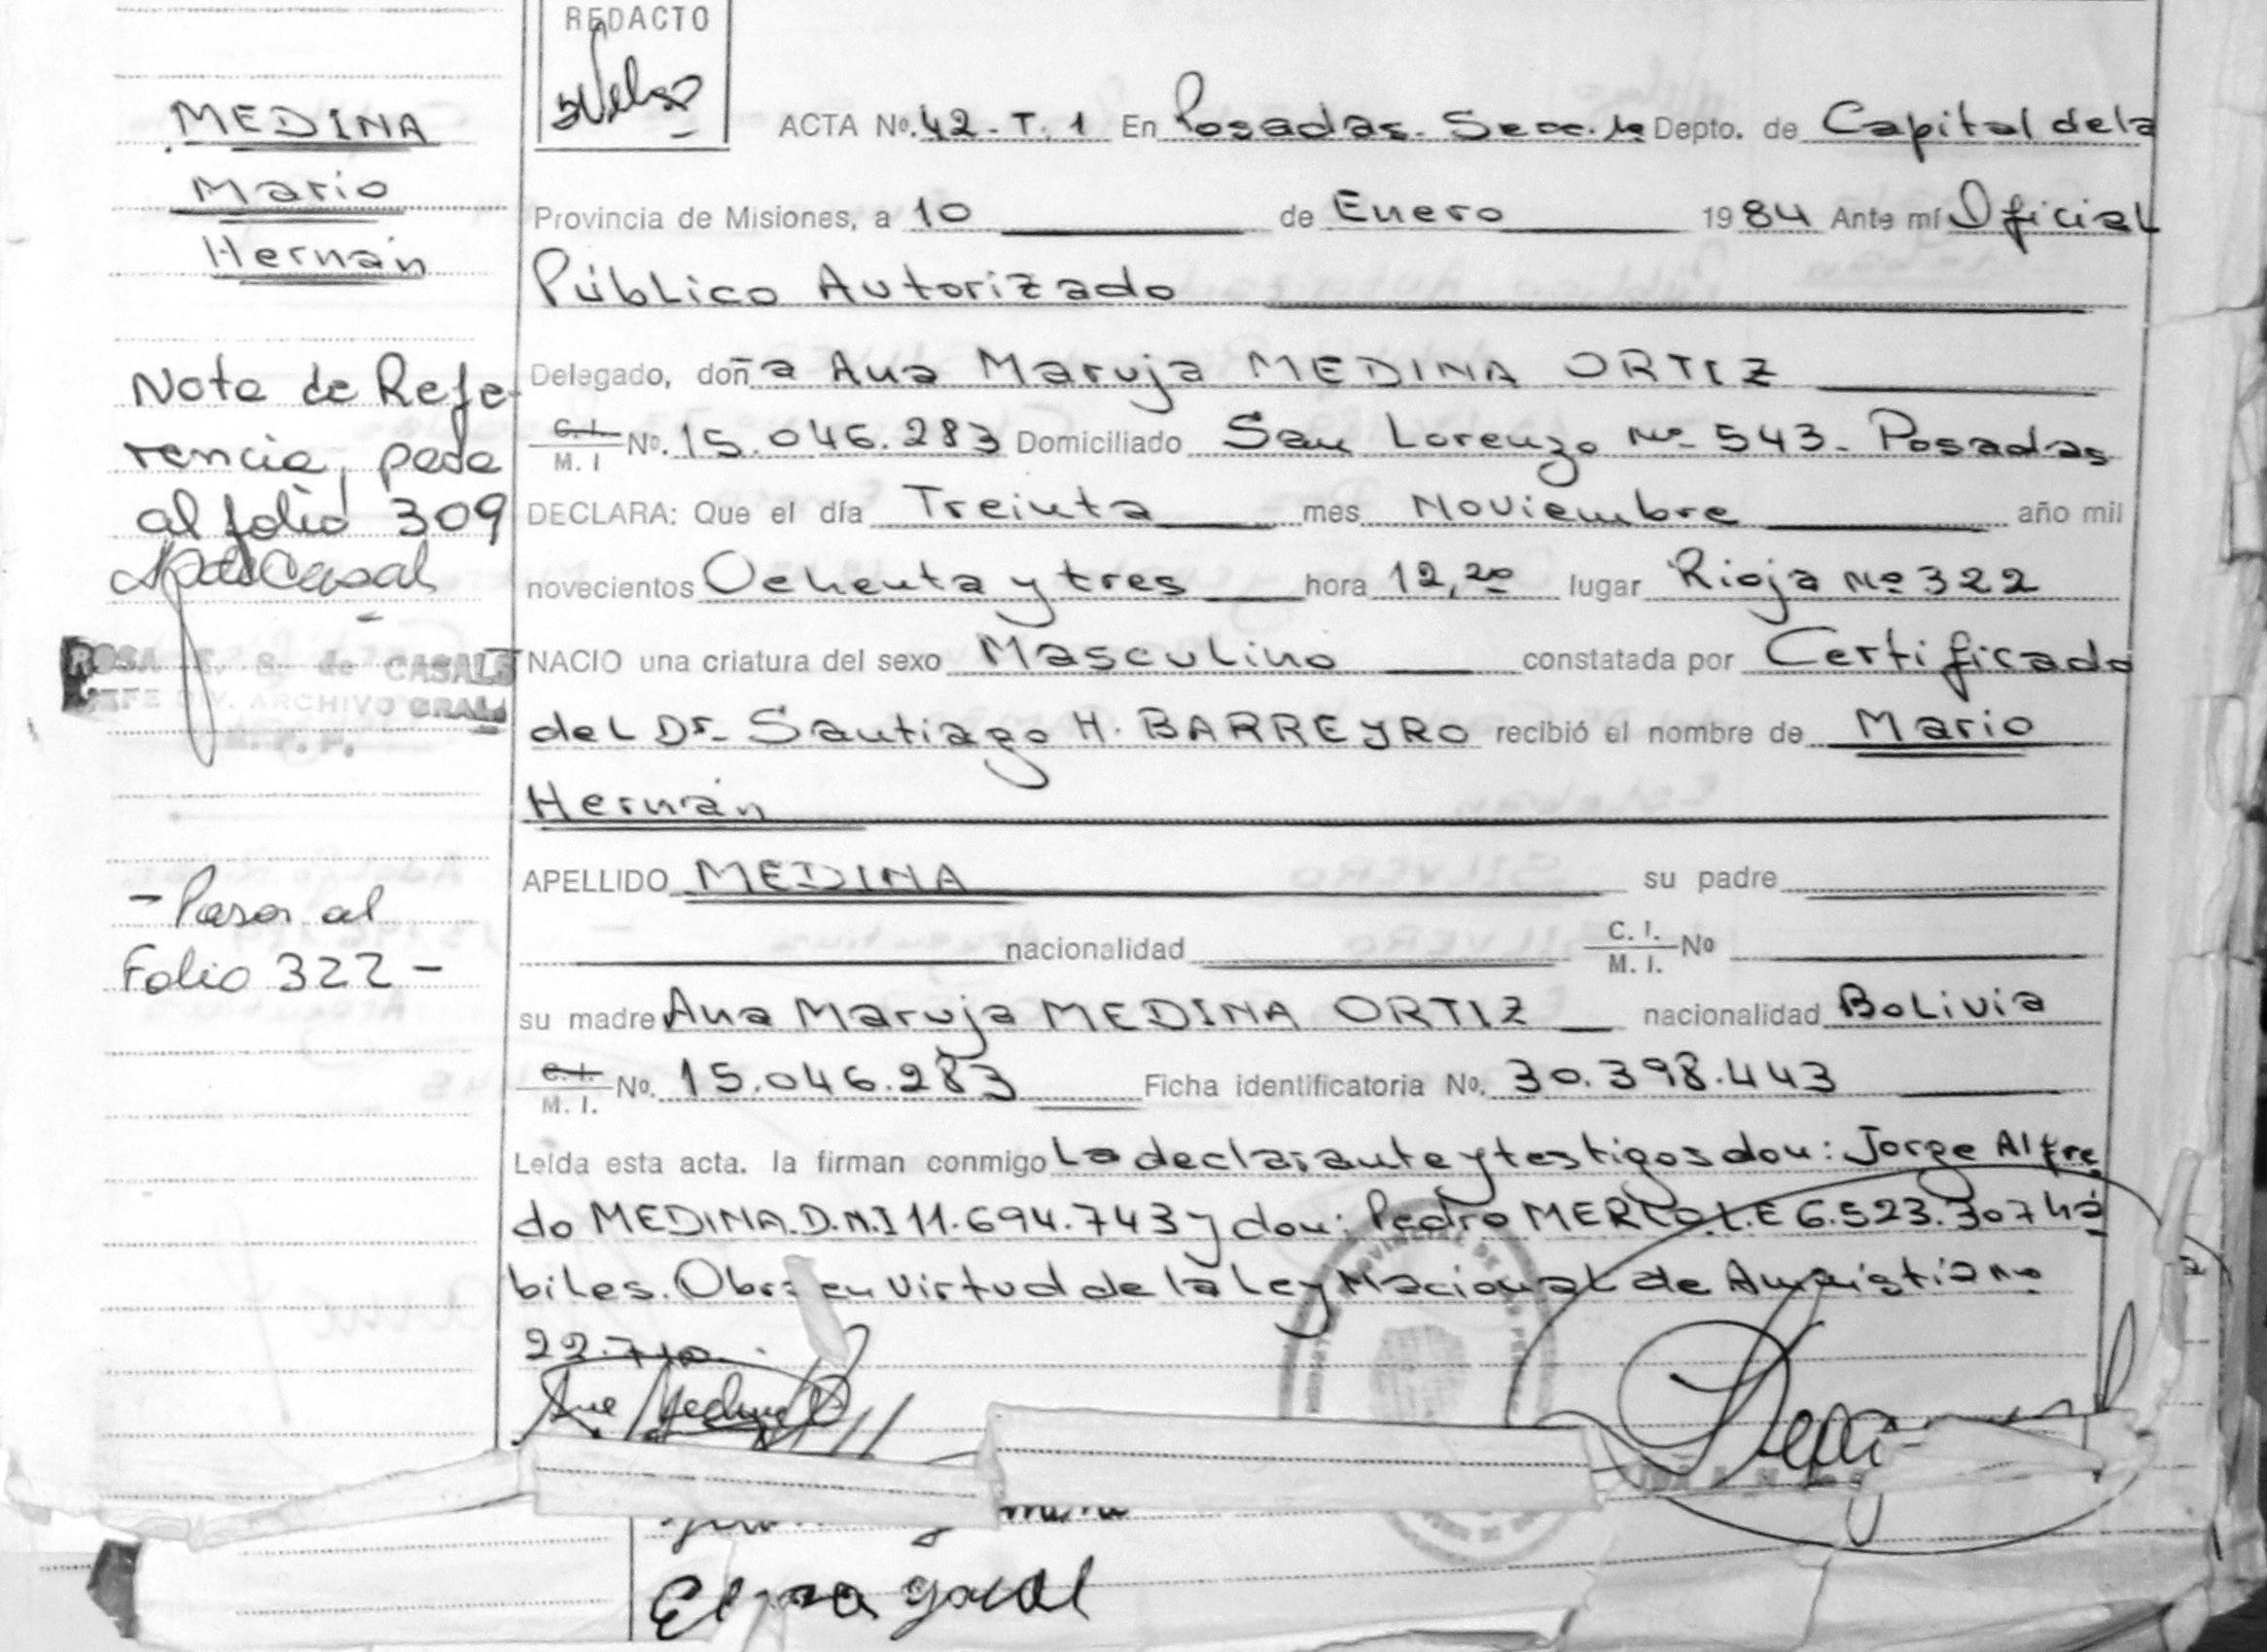 REDACTO
ACTA Nº. 42 - T. 1 En Posadas. Secc. 1a Depto. de Capital de la
Provincia de Misiones, a 10 de Enero 1984 Ante mí Oficial
Público Autorizado
Delegado, doña Ana Maruja MEDINA ORTIZ
C. I. M. I Nº. 15.046.283 Domiciliado San Lorenzo Nº 543 - Posadas
DECLARA: Que el día Treinta mes Noviembre año mil
novecientos Ochenta y tres hora 12,20 lugar Rioja Nº 322
NACIO una criatura del sexo Masculino constatada por Certificado
del Dr. Santiago H. BARREYRO recibió el nombre de Mario
Hernán
APELLIDO MEDINA su padre
nacionalidad C. I. M. I. Nº
su madre Ana Maruja MEDINA ORTIZ nacionalidad Bolivia
C. I. M. I. Nº. 15.046.283 Ficha identificatoria No. 30.398.443
Leída esta acta. la firman conmigo La declarante y testigos don: Jorge Alfre
do MEDINA. D.N.I 11.694.743 y don: Pedro MERLO L.E 6.523.307 há
biles. Obra en Virtud de la Ley Nacional de Amnistía Nº
22.710.
MEDINA
Mario
Hernán
Nota de Refe-
rencia, pasa
al folio 309
ROSA de CASALS
JEFE DIV. ARCHIVO GRAL.
R. P. P.
- Pasa al
Folio 322 -